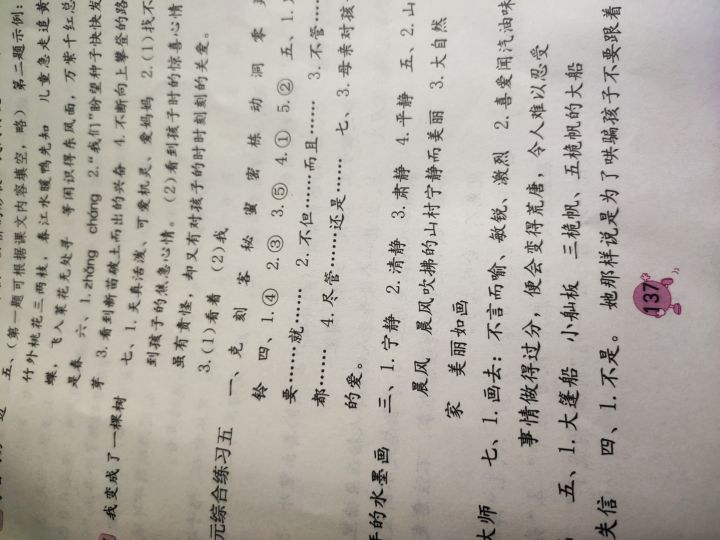 五、(第一题可根据课文内容填空,略) 第二题示例:
竹外桃花三两枝,春江水暖鸭先知 儿童急走追黄
蝶,飞入菜花无处寻 等闲识得东风面,万紫千红总
是春 六、1.zhǎng cháng 2.“我们”盼望种子快快发
芽 3.看到新苗破土而出的兴奋 4.不断向上攀登的路
我变成了一棵树 七、1.天真活泼、可爱机灵、爱妈妈 2.(1)找不
到孩子的焦急心情。(2)看到孩子时的惊喜心情
虽有责怪,却又有对孩子的时时刻刻的关爱。
3.(1)看着 (2)我
元综合练习五 一、克 刻 客 秘 蜜 密 栋 动 洞 零
铃 四、1.④ 2.③ 3.⑤ 4.① 5.② 五、1.
要……就…… 2.不但……而且…… 3.不管……
都…… 4.尽管……还是…… 七、3.母亲对孩
的爱。
的水墨画 三、1.宁静 2.清静 3.肃静 4.平静 五、2.山
晨风 晨风吹拂的山村宁静而美丽 3.大自然
家 美丽如画
大师 七、1.画去:不言而喻、敏锐、激烈 2.喜爱闻汽油味
事情做得过分,便会变得荒唐,令人难以忍受
五、1.大篷船 小舢板 三桅帆、五桅帆的大船
失信 四、1.不是。她那样说是为了哄骗孩子不要跟着
137